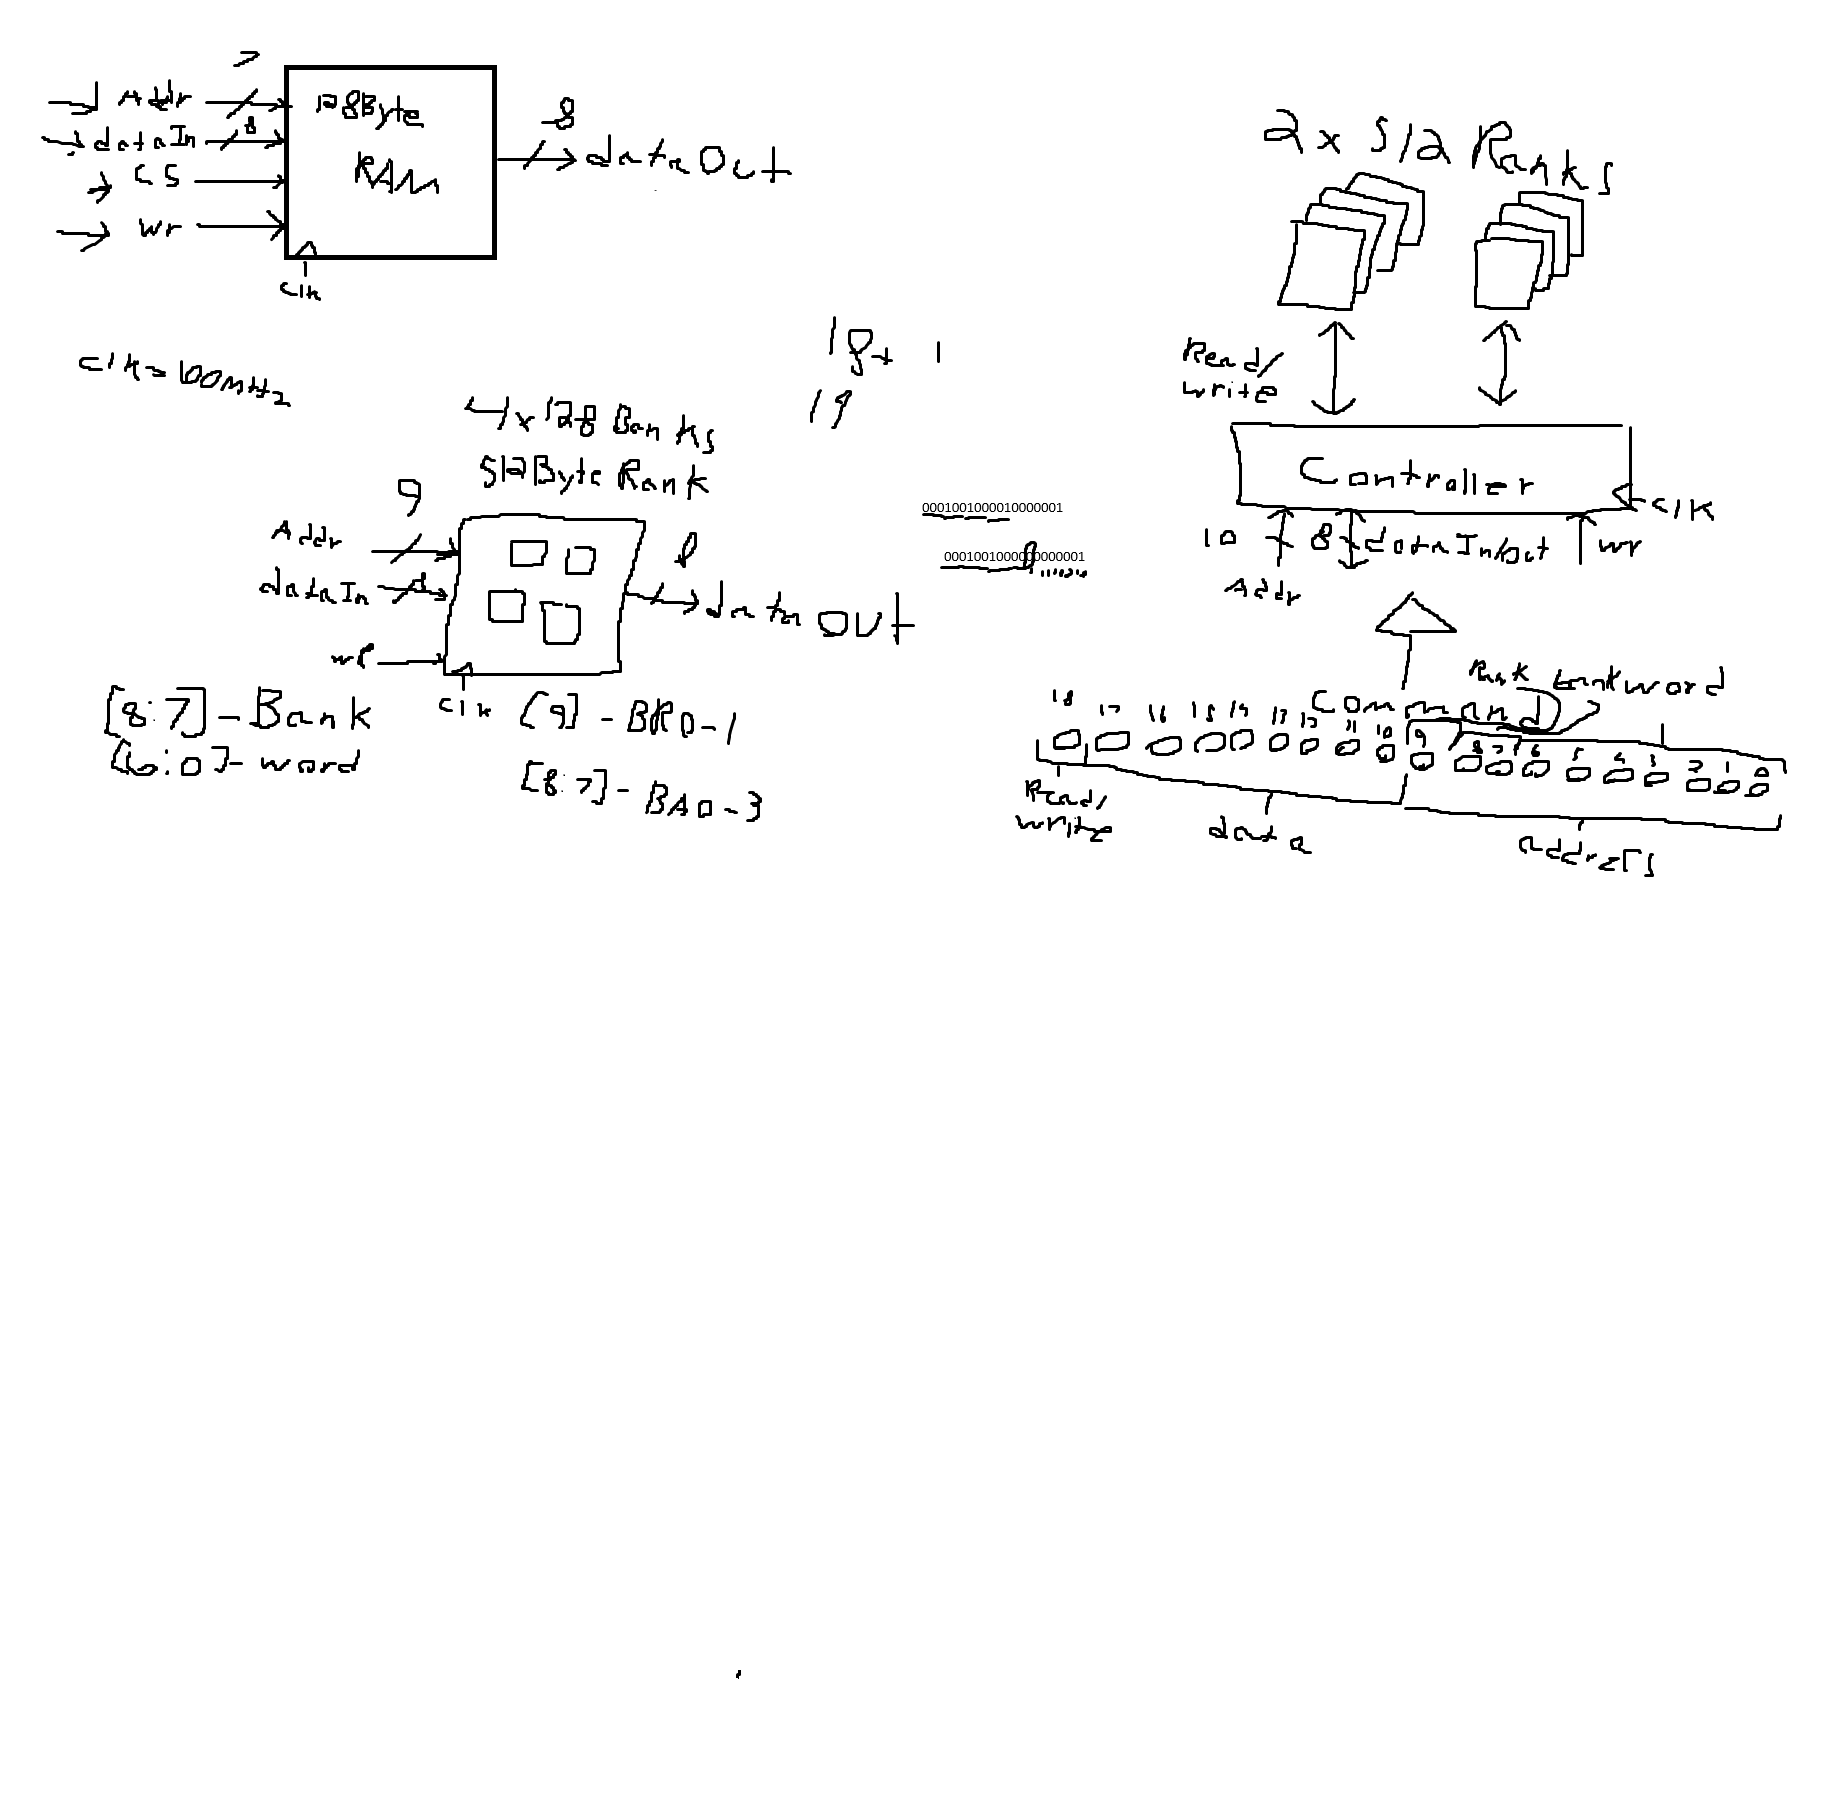 7
Addr
dataIn 8
CS
Wr
128Byte
RAM
clk
8
dataOut
clk=100MHz
4x128 Banks
512Byte Rank
9
Addr
dataIn 8
wr
clk
8
dataout
[8:7]-Bank
[6:0]-word
[9]-BR0-1
[8:7]-BA0-3
18+ 1
19
0001001000010000001
0001001000000000001
2x512 Ranks
Read/
write
Controller
clk
10
8
dataIn/out
wr
Addr
Command
Rank
Bank
word
18 17 16 15 14 13 12 11 10 9 8 7 6 5 4 3 2 1 0
Read/
write
data
address